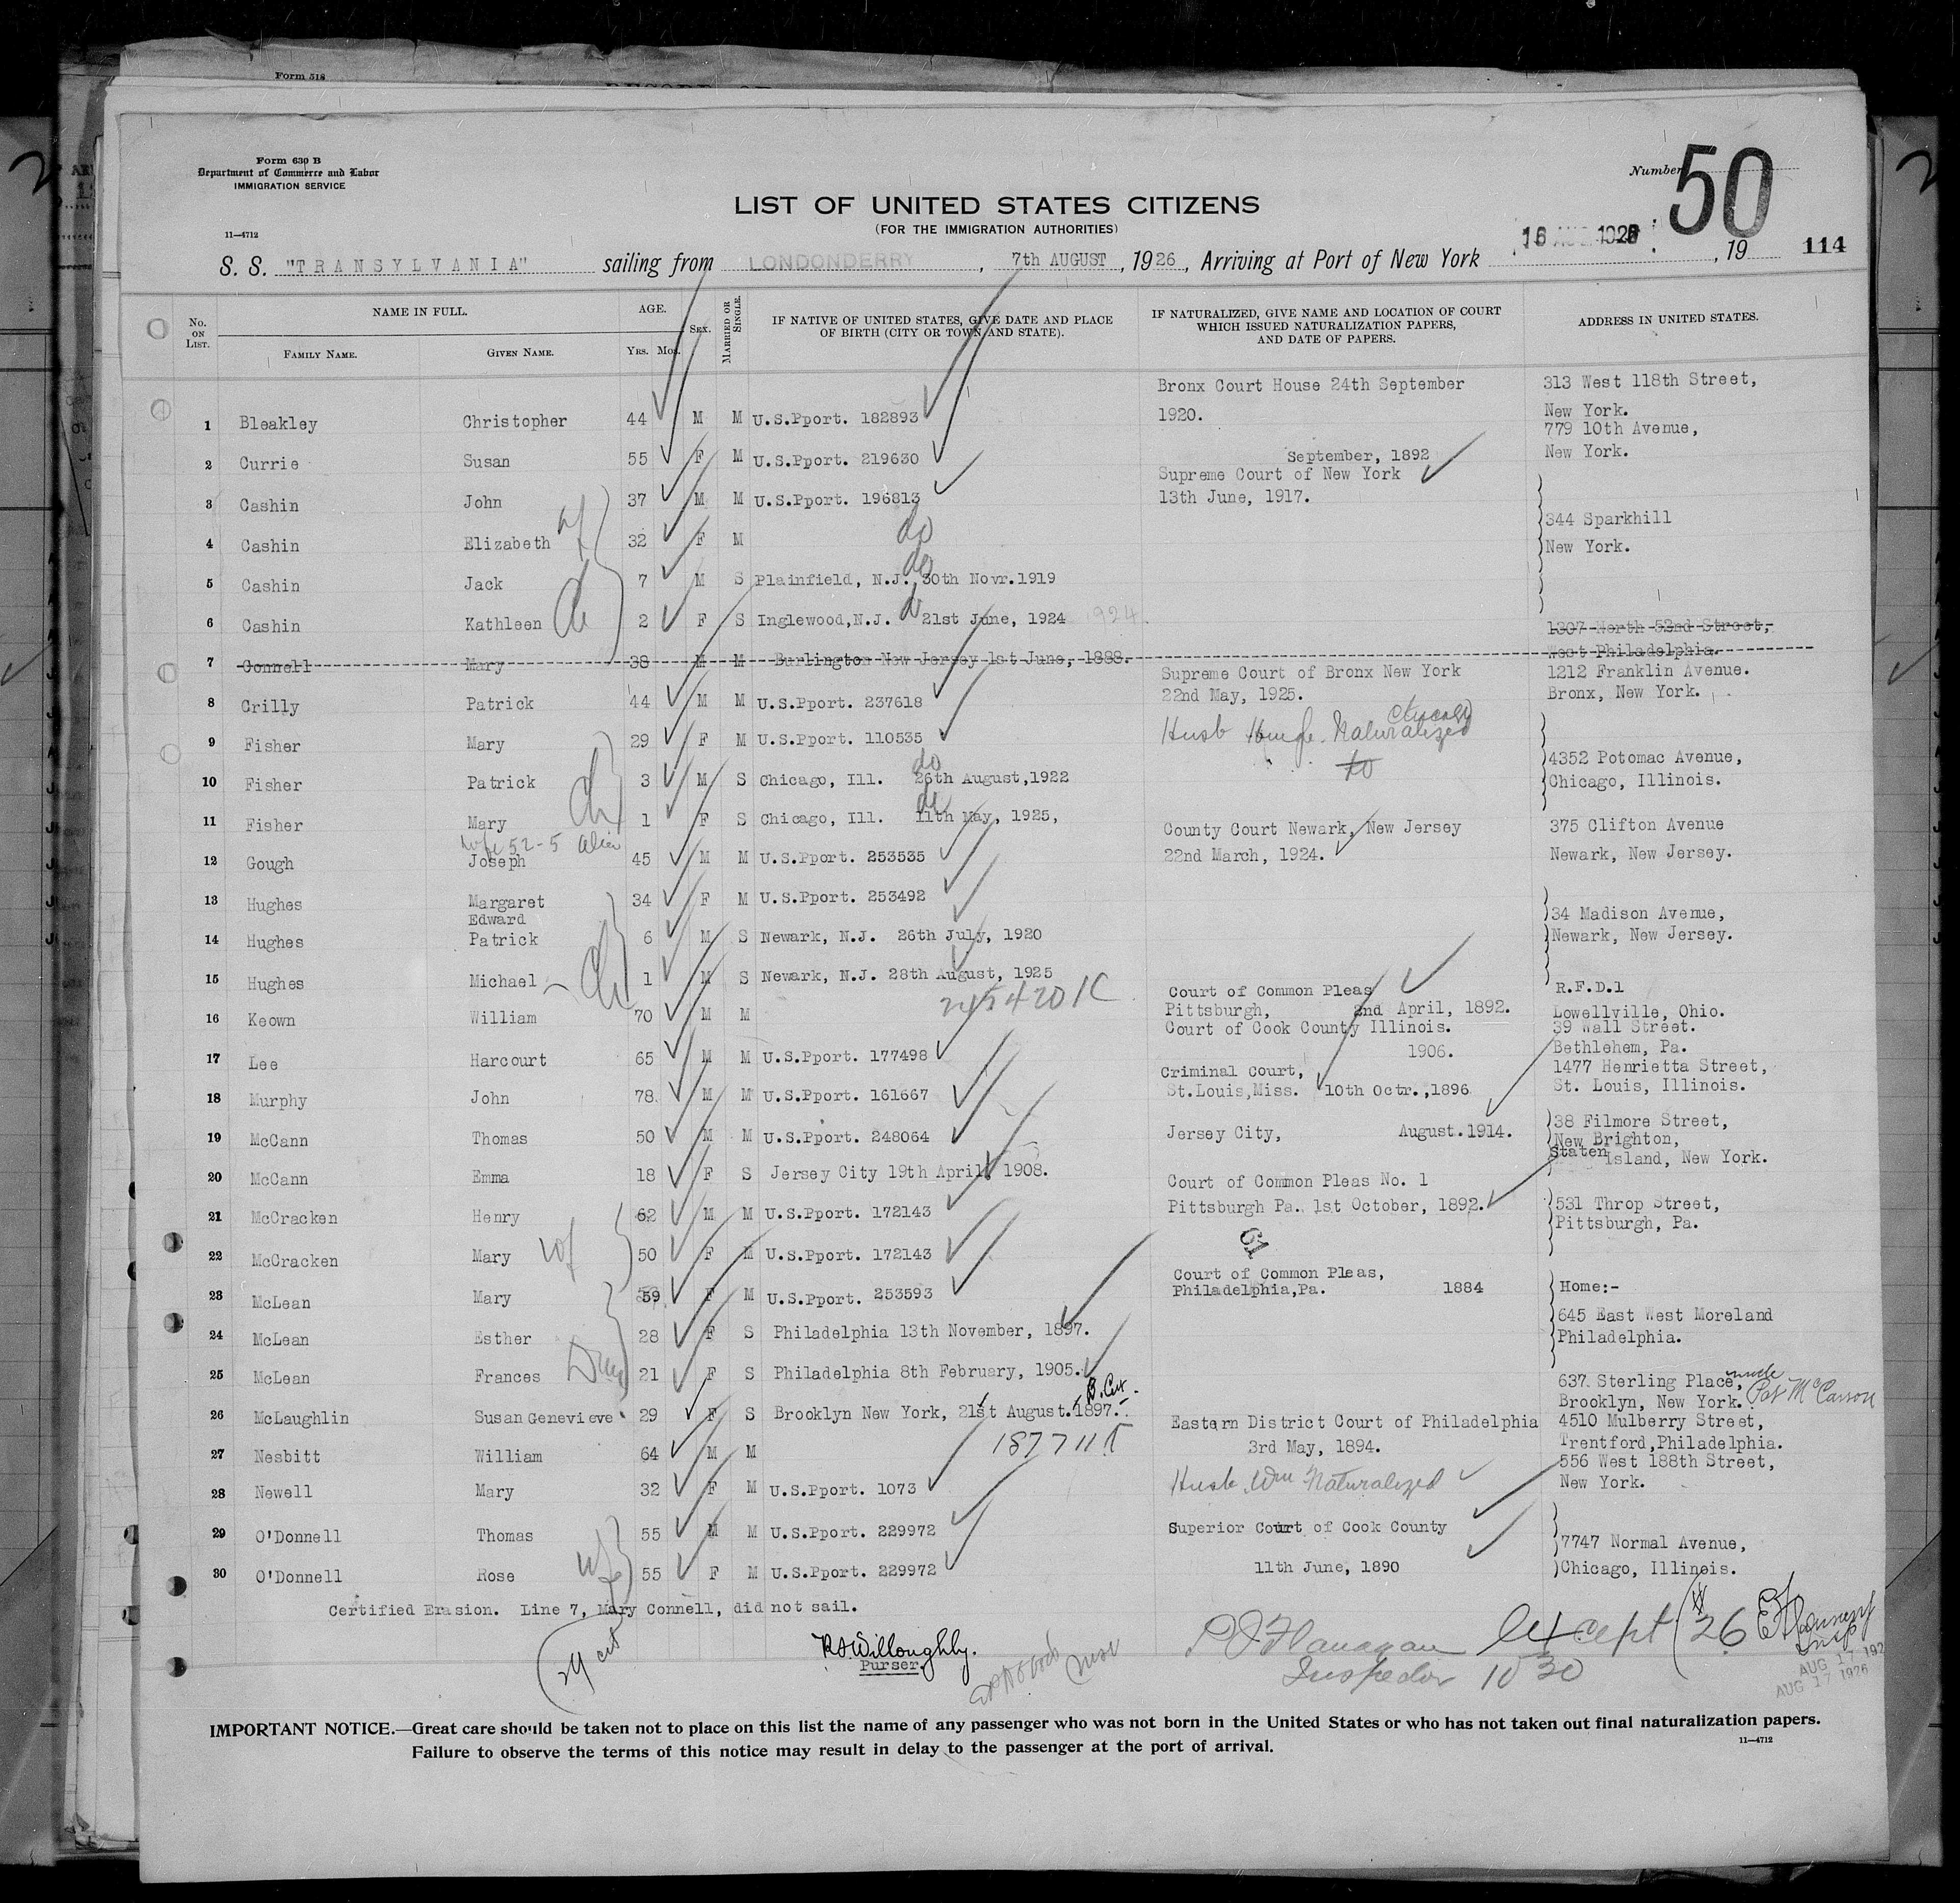 Form 518
Form 630 B
Department of Commerce and Labor
IMMIGRATION SERVICE
11—4712
Number 50
LIST OF UNITED STATES CITIZENS
(FOR THE IMMIGRATION AUTHORITIES)
S. S. "TRANSYLVANIA" sailing from LONDONDERRY, 7th AUGUST, 1926, Arriving at Port of New York 16 AUG 1926, 19 114
No. ON LIST. NAME IN FULL. FAMILY NAME. GIVEN NAME. AGE. YRS. MOS. SEX. MARRIED OR SINGLE. IF NATIVE OF UNITED STATES, GIVE DATE AND PLACE OF BIRTH (CITY OR TOWN AND STATE). IF NATURALIZED, GIVE NAME AND LOCATION OF COURT WHICH ISSUED NATURALIZATION PAPERS, AND DATE OF PAPERS. ADDRESS IN UNITED STATES.
1 Bleakley Christopher 44 M M U.S.Pport. 182893 Bronx Court House 24th September 1920. 313 West 118th Street, New York.
2 Currie Susan 55 F M U.S.Pport. 219630 September, 1892 779 10th Avenue, New York.
3 Cashin John 37 M M U.S.Pport. 196813 Supreme Court of New York 13th June, 1917.
4 Cashin Elizabeth wf 32 F M do 344 Sparkhill New York.
5 Cashin Jack 7 M S Plainfield, N.J. do 30th Novr.1919
6 Cashin Kathleen Ch 2 F S Inglewood,N.J. do 21st June, 1924 1924
7 Connell Mary 38 M M Burlington New Jersey 1st June, 1888. 1307 North 52nd Street, West Philadelphia.
8 Crilly Patrick 44 M M U.S.Pport. 237618 Supreme Court of Bronx New York 22nd May, 1925. 1212 Franklin Avenue. Bronx, New York.
9 Fisher Mary 29 F M U.S.Pport. 110535 Husb Naturalized Chicago
10 Fisher Patrick Ch 3 M S Chicago, Ill. do 26th August,1922 4352 Potomac Avenue, Chicago, Illinois.
11 Fisher Mary 1 F S Chicago, Ill. do 11th May, 1925,
wife 52-5 alien
12 Gough Joseph 45 M M U.S.Pport. 253535 County Court Newark, New Jersey 22nd March, 1924. 375 Clifton Avenue Newark, New Jersey.
13 Hughes Margaret 34 F M U.S.Pport. 253492
14 Hughes Edward Patrick 6 M S Newark, N.J. 26th July, 1920 34 Madison Avenue, Newark, New Jersey.
15 Hughes Michael Ch 1 M S Newark, N.J. 28th August, 1925
16 Keown William 70 M M Court of Common Pleas Pittsburgh, 2nd April, 1892. R.F.D.1 Lowellville, Ohio.
17 Lee Harcourt 65 M M U.S.Pport. 177498 Court of Cook County Illinois. 1906. 39 Wall Street. Bethlehem, Pa.
18 Murphy John 78 M M U.S.Pport. 161667 Criminal Court, St.Louis,Miss. 10th Octr.,1896 1477 Henrietta Street, St. Louis, Illinois.
19 McCann Thomas 50 M M U.S.Pport. 248064 Jersey City, August.1914. 38 Filmore Street, New Brighton, Staten Island, New York.
20 McCann Emma 18 F S Jersey City 19th April 1908.
21 McCracken Henry 62 M M U.S.Pport. 172143 Court of Common Pleas No. 1 Pittsburgh Pa. 1st October, 1892. 531 Throp Street, Pittsburgh, Pa.
22 McCracken Mary wf 50 F M U.S.Pport. 172143 61
23 McLean Mary 59 F M U.S.Pport. 253593 Court of Common Pleas, Philadelphia,Pa. 1884 Home:-
24 McLean Esther 28 F S Philadelphia 13th November, 1897. 645 East West Moreland Philadelphia.
25 McLean Frances 21 F S Philadelphia 8th February, 1905.
26 McLaughlin Susan Genevieve 29 F S Brooklyn New York, 21st August.1897. B. Cert. 637 Sterling Place, Brooklyn, New York. uncle Pat
27 Nesbitt William 64 M M Eastern District Court of Philadelphia 3rd May, 1894. 4510 Mulberry Street, Trentford,Philadelphia.
28 Newell Mary 32 F M U.S.Pport. 1073 Husb. Wm Naturalized 556 West 188th Street, New York.
29 O'Donnell Thomas 55 M M U.S.Pport. 229972 Superior Court of Cook County 7747 Normal Avenue,
30 O'Donnell Rose wf 55 F M U.S.Pport. 229972 11th June, 1890 Chicago, Illinois.
Certified Erasion. Line 7, Mary Connell, did not sail.
29 cit
R.S. Willoughby.
Purser.
Flanagan except 26
Inspector 10 30
AUG 17 192
AUG 17 1926
IMPORTANT NOTICE.—Great care should be taken not to place on this list the name of any passenger who was not born in the United States or who has not taken out final naturalization papers.
Failure to observe the terms of this notice may result in delay to the passenger at the port of arrival.
11—4712